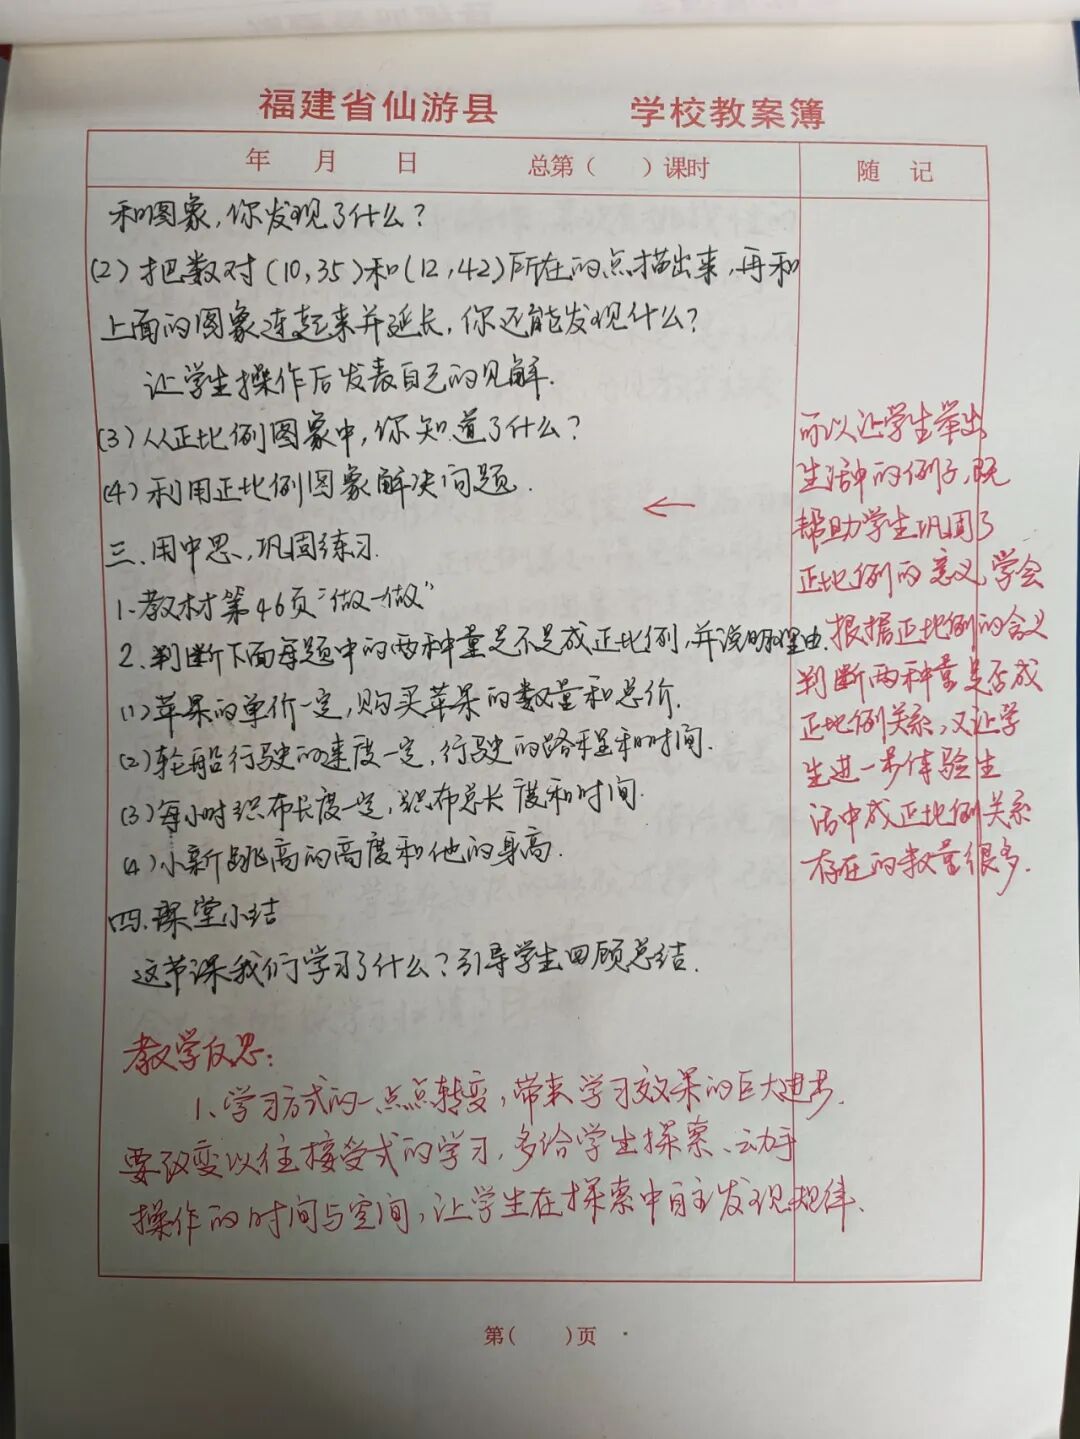 福建省仙游县 学校教案簿
年 月 日 总第( )课时 随 记
和图象,你发现了什么?
(2)把数对(10,35)和(12,42)所在的点描出来,再和
上面的图象连起来并延长,你还能发现什么?
让学生操作后发表自己的见解.
(3)从正比例图象中,你知道了什么?
(4)利用正比例图象解决问题.
三.用中思,巩固练习.
1.教材第46页“做一做”
2.判断下面每题中的两种量是不是成正比例,并说明理由.
(1)苹果的单价一定,购买苹果的数量和总价.
(2)轮船行驶的速度一定,行驶的路程和时间.
(3)每小时织布长度一定,织布总长度和时间.
(4)小新跳高的高度和他的身高.
四.课堂小结
这节课我们学习了什么?引导学生回顾总结.
可以让学生举出
生活中的例子,既
帮助学生巩固了
正比例的意义,学会
根据正比例的含义
判断两种量是否成
正比例关系,又让学
生进一步体验生
活中成正比例关系
存在的数量很多.
教学反思:
1、学习方式的一点点转变,带来学习效果的巨大进步.
要改变以往接受式的学习,多给学生探索、动手
操作的时间与空间,让学生在探索中自主发现规律.
第( )页